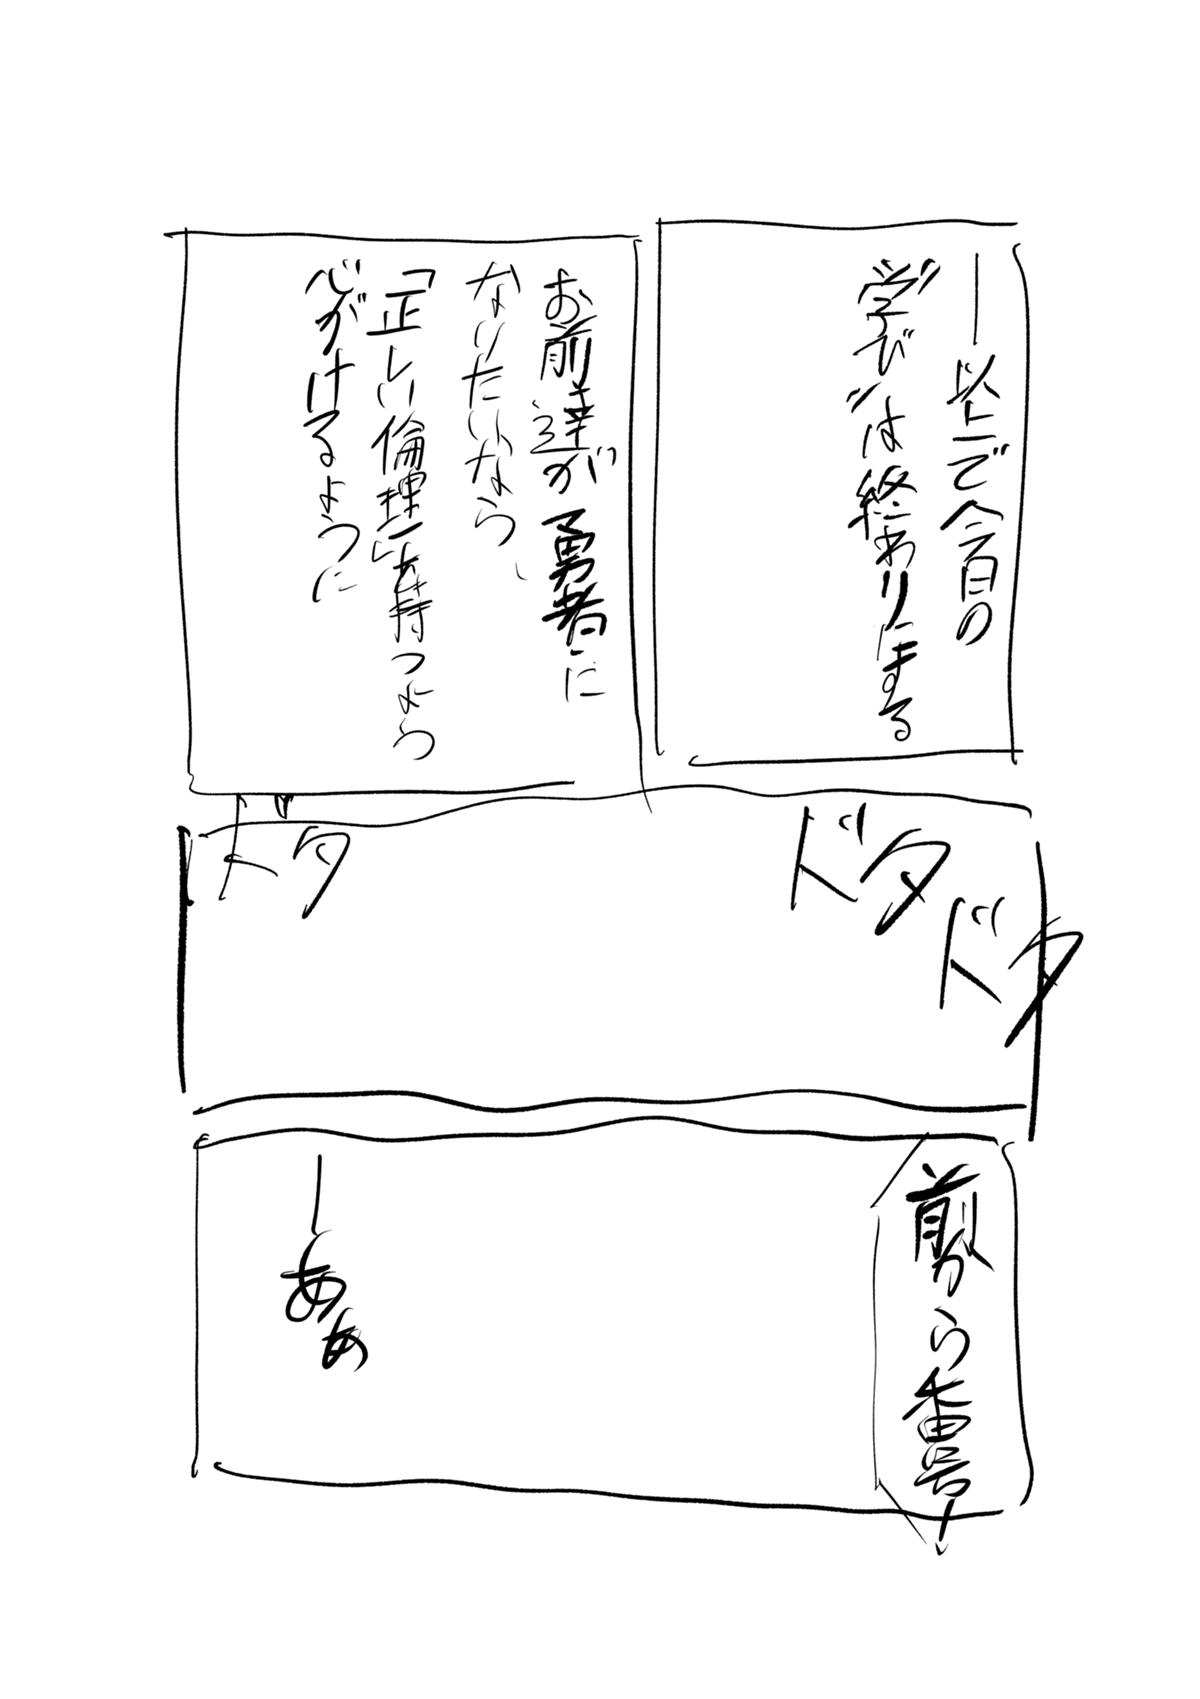 ──以上で今日の
"学び"は終わりにする
お前達が勇者に
なりたいなら、
「正しい倫理」を持つよう
心がけるように
ドタ
ドタ
ドタ
前から番号!
─ああ